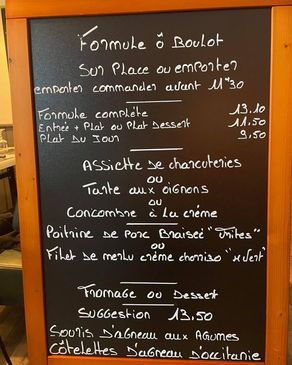 Formule ô Boulot
Sur Place ou emporter
emporter commander avant 11"30
Formule complète 13.10
Entrée + Plat ou Plat Dessert 11.50
Plat Du Jour 9,50
Assiette de charcuteries
ou
Tarte aux oignons
ou
Concombre à La crème
Poitrine de Porc Braisée "Frites"
ou
Filet de merlu crème chorizo "H Vert"
Fromage ou Dessert
Suggestion 13,50
Souris D'agneau aux Agumes
Côtelettes D'agneau D'occitanie